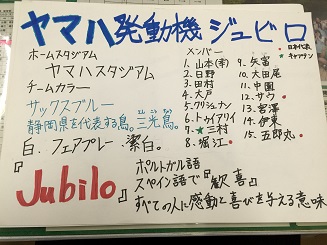 ヤマハ発動機ジュビロ
★日本代表
★キャプテン
ホームスタジアム
ヤマハスタジアム
チームカラー
サックスブルー
静岡県を代表する鳥。三光鳥。
白. フェアプレー. 潔白。
メンバー
1. 山本(幸)
2. 日野
3. 田村
4. 大戸
5. クリシュナン
6. トゥイアリイ
7. ★三村
8. 堀江
9. 矢富
10. 大田尾
11. 中園
12. サウ
13. 宮澤
14. 伊東
15. 五郎丸
『Jubilo』
ポルトガル語
スペイン語で『歓喜』
すべての人に感動と喜びを与える意味